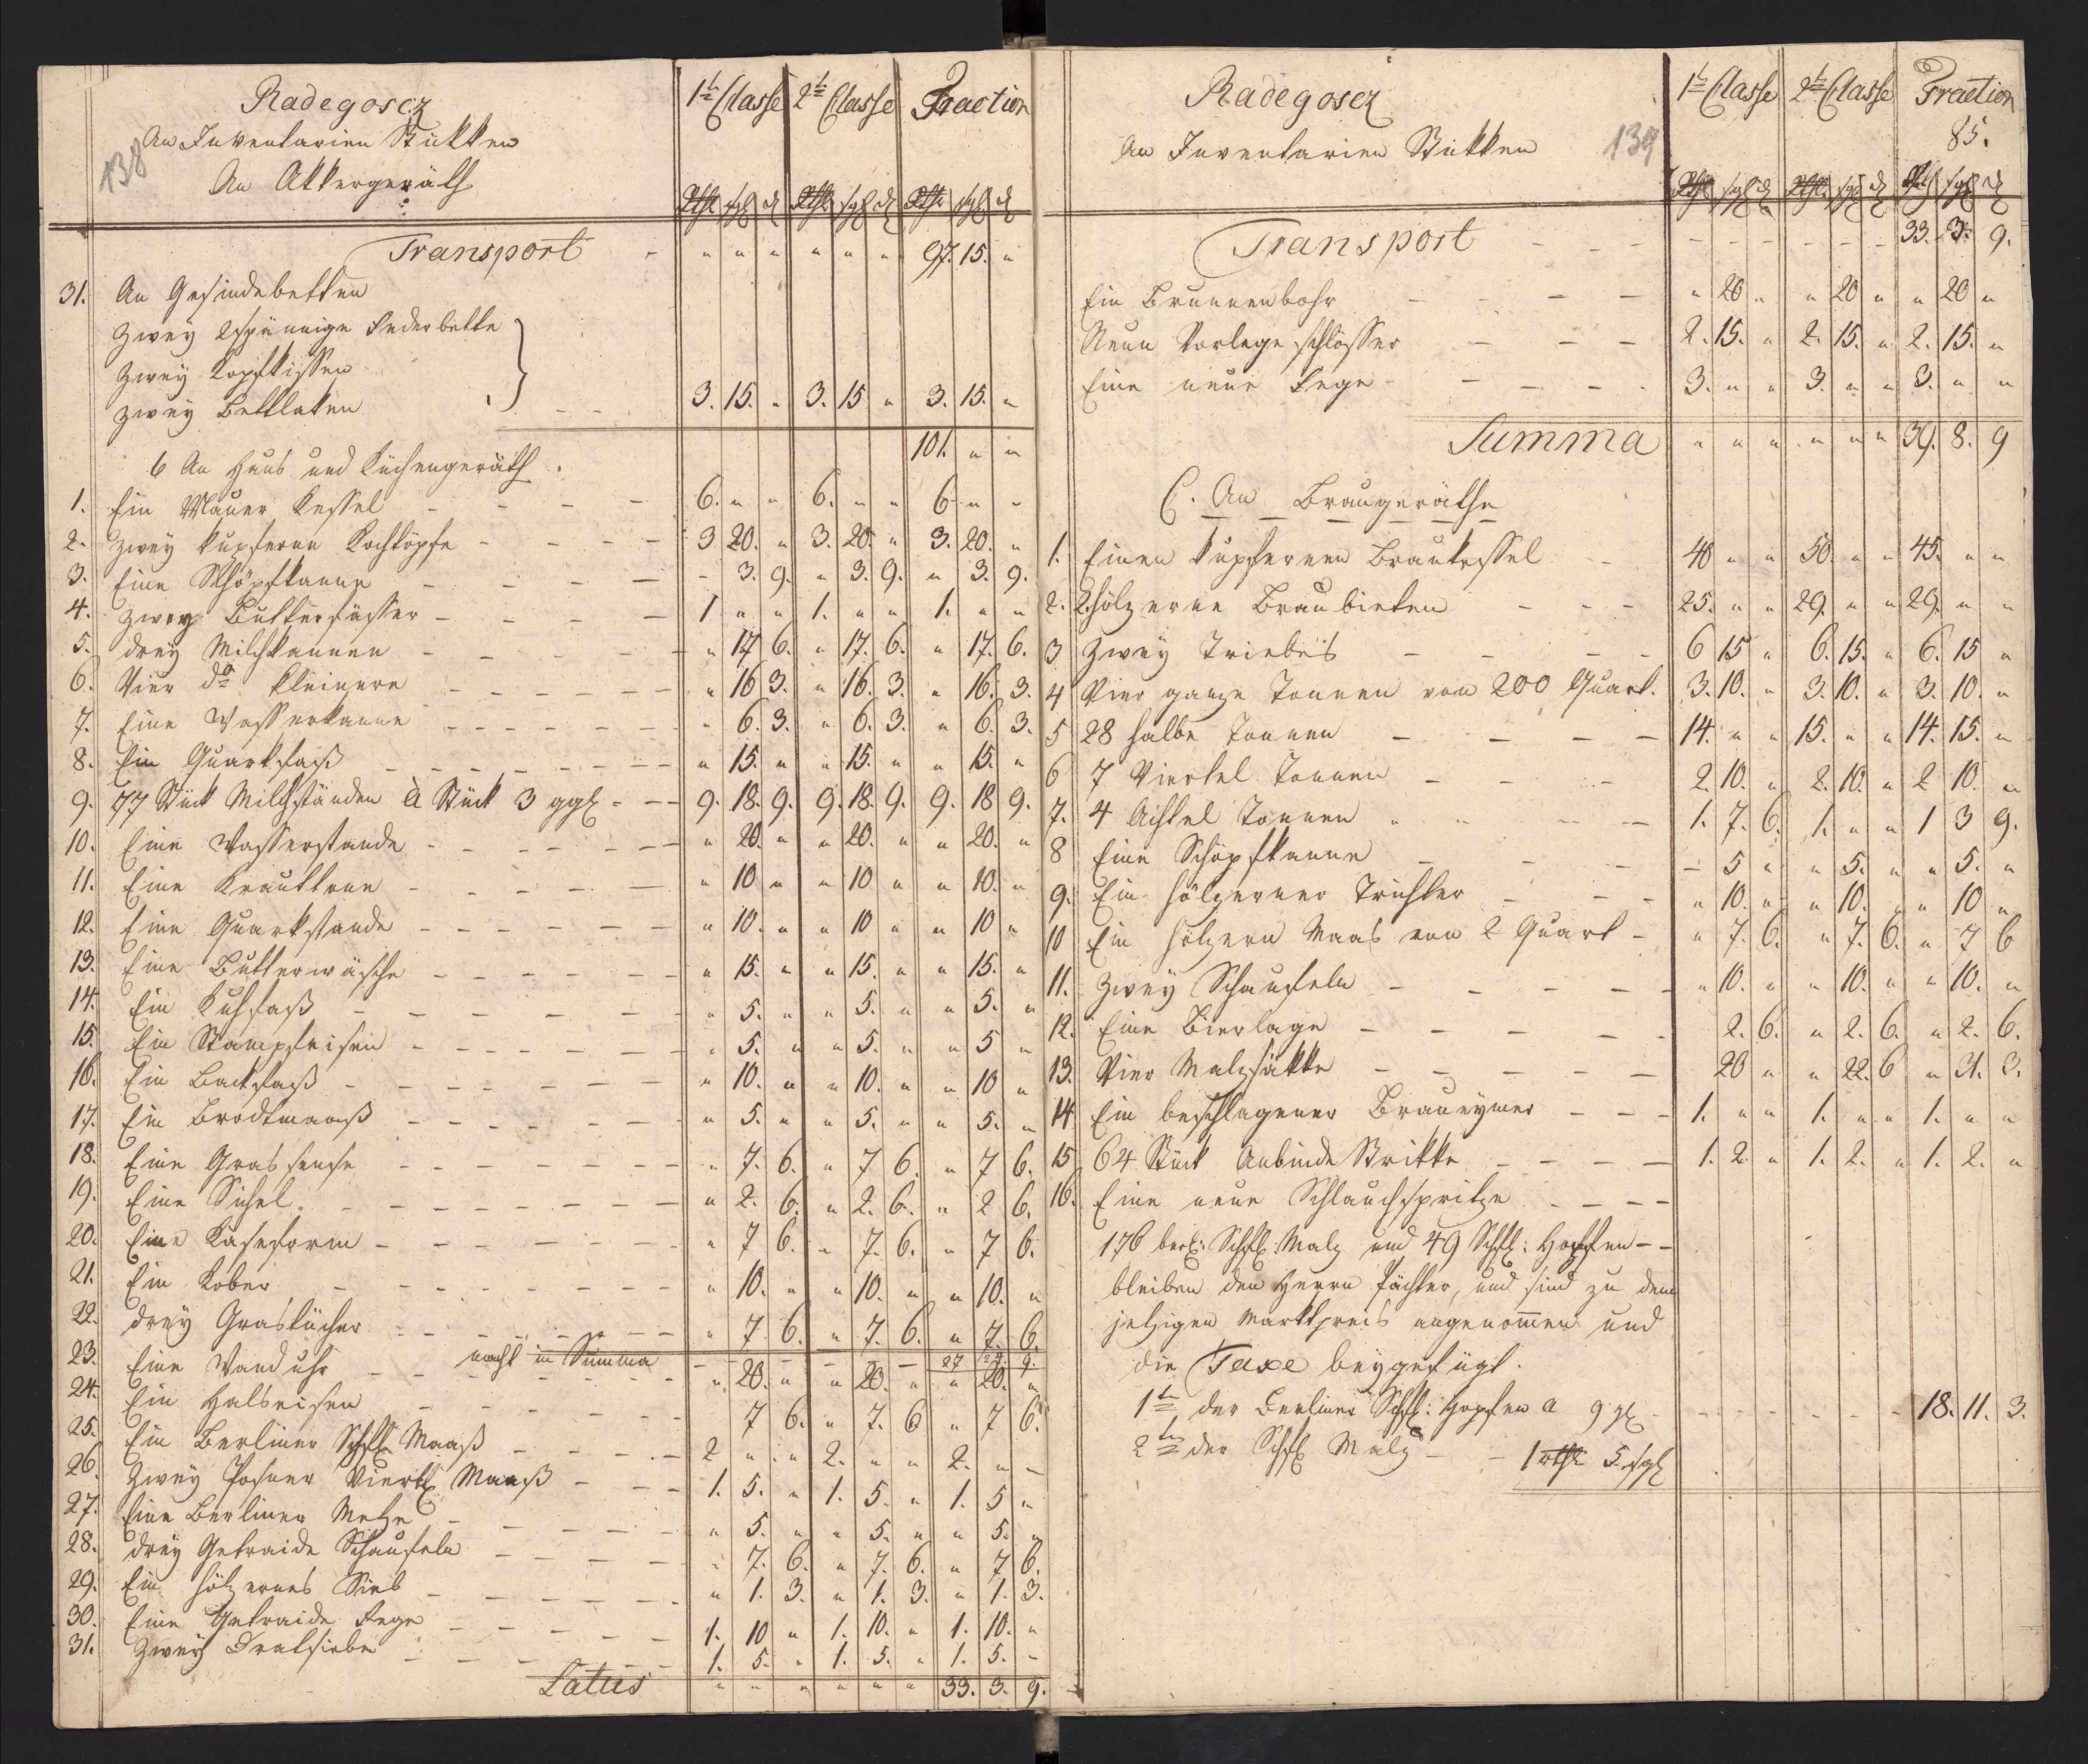 Radegoscz
138 An Inventarien Stükken
An Akkergeräth
1te Classe 2te Classe Fraction
Rthr sgl d Rthr sgl d Rthr sgl d
Transport - " " " " " " 97. 15. "
31. An Gesindebetten
Zwey 2spännige Federbette
Zwey Kopfkissen
zwey Bettlaken - - 3. 15. " 3. 15 " 3. 15. "
101. " "
6 An Haus und Küchengeräth.
1. Ein Mauer Kessel - - - 6. " " 6. " " 6 " "
2. Zwey kupferne Kochtöpfe - - - - 3 20. " 3. 20. " 3. 20. "
3. Eine Schöpfkanne - - - - 3. 9. " 3. 9. " 3. 9.
4. Zwey Butterfässer - - - - 1 " " 1. " " 1. " "
5. drey Milchkannen - - - - " 17 6. " 17. 6. " 17. 6.
6. Vier do kleinere - - - - - - " 16 3. " 16. 3. " 16. 3.
7. Eine Wasserkanne - - - - - " 6. 3. " 6. 3. " 6. 3.
8. Ein Quarkfaß - - - - - - - " 15. " " 15. " " 15. "
9. 77 Stück Milchständen à Stück 3 ggl - - - 9. 18. 9. 9. 18. 9. 9. 18 9.
10. Eine Wasserstande - - - - - - " 20. " " 20. " " 20. "
11. Eine Krauttone - - - - - " 10 " " 10 " " 10. "
12. Eine Quarkstande - - - - - - " 10. " " 10 " " 10 "
13. Eine Butterwäsche - - - - - - " 15. " " 15. " " 15. "
14. Ein Kuhfaß - - - - - - " 5. " " 5. " " 5. "
15. Ein Stampfeisen - - - - - - " 5. " " 5. " " 5 "
16. Ein Backfaß - - - - - - - " 10. " " 10. " " 10 "
17. Ein Brodtmaaß - - - - - - " 5. " " 5. " " 5. "
18. Eine Grassense - - - - - - " 7. 6. " 7 6. " 7 6.
19. Eine Sichel. - - - - - - - " 2. 6. " 2. 6. " 2 6.
20. Eine Käseform - - - - - - " 7 6. " 7. 6. " 7 6.
21. Ein Kober - - - - - - - " 10. " " 10. " " 10. "
22. drey Grastücher - - - - - - " 7 6. " 7. 6. " 7. 6.
macht in Summa - - - - - - 27 24. 9.
23. Eine Wanduhr - - - - - - " 20. " " 20. " " 20. "
24. Ein Halseisen - - - - - 7 6. " 7. 6 " 7 6.
25. Ein Berliner Schfl Maaß - - - - 2 " " 2. " " 2. " -
26. Zwey Posner Viertl Maaß - - - 1. 5. " 1. 5. " 1. 5 "
27. Eine Berliner Metze - - - - - " 5. " " 5. " " 5. "
28. drey Getraide Schaufeln - - - - - " 7. 6. " 7. 6. " 7 6.
29. Ein hölzernes Sieb - - - - - " 1. 3. " 1. 3. " 1. 3.
30. Eine Getraide Fege - - - - - 1. 10 " 1. 10. " 1. 10. "
31. Zwey Dratsiebe - - - - - 1. 5. " 1. 5. " 1. 5. -
Latus " " " " " " 33. 3. 9.
Radegoscz
An Inventarien Stükken 139
1te Classe 2te Classe Fraction
85.
Rthr sgl d Rthr sgl d Rthl sgl d
Transport - - - - - - - - - - 33. 3. 9.
Ein Brunnenbohr - - - - " 20 " " 20 " " 20 "
Neun Vorlege schlösser - - - 2. 15. " 2. 15. " 2. 15. "
Eine neue Fege - - - - - 3. " " 3. " " 3. " "
Summa " " " " " " 39. 8. 9
C. An Braugeräthe
1. Einen kupfernen Braukessel - 40 " " 50. " " 45. " "
2. 2 hölzerne Braubieten - - - 25. " " 29. " " 29. " "
3 Zwey Triebes - - - - 6 15 " 6. 15. " 6. 15 "
4 Vier ganze Tonnen von 200 Quart. 3. 10. " 3. 10. " 3. 10. "
5 28 halbe Tonnen - - - - 14. " " 15. " " 14. 15. "
6 7 Viertel Tonnen - - - 2. 10. " 2. 10. " 2 10. "
7. 4 Achtel Tonnen " " - - 1. 7. 6. 1. " " 1 3 9.
8 Eine Schöpfkanne - - - - 5 " " 5. " " 5. "
9. Ein hölzerner Trichter - - - " 10. " " 10. " " 10 "
10 Ein hölzern Maas von 2 Quart - " 7. 6. " 7. 6. " 7 6
11. Zwey Schaufeln - - - - - " 10. " " 10. " " 10. "
12. Eine Bierlage - - - - - 2. 6. " 2. 6. " 2. 6.
13. Vier Malzsäkke - - - - - 20 " " 22. 6 " 21. 3.
14 Ein beschlagener Braueymer - - - 1. " " 1. " " 1. " "
15 64 Stück Anbinde Strikke - - - - 1. 2. " 1. 2. " 1. 2. "
16. Eine neue Schlauchspritze - - - -
176 berl: Schfl: Malz und 49 Schfl: Hopffen - -
bleiben den Herrn Pächter, und sind zu dem
jetzigen Marktpreis angenommen und
die Taxe beygefügt.
1tn der Berliner Schfl: Hopfen a 9 gl - - - - - - - 18. 11. 3.
2tn der Schfl Malz - - 1 rthr 5 sgl